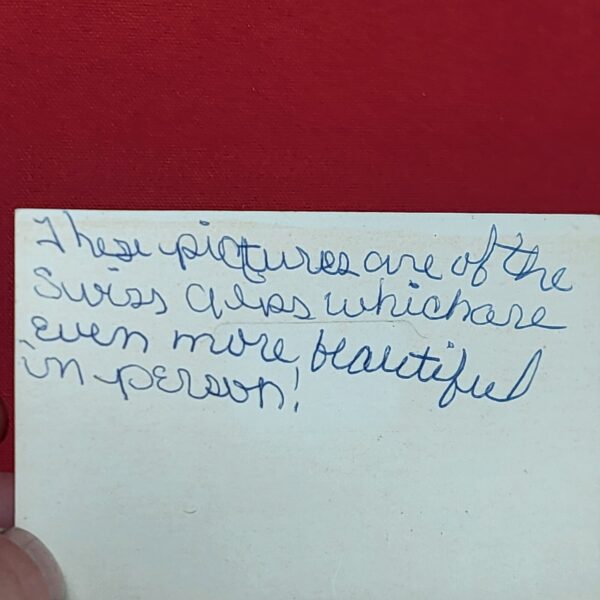 These pictures are of the
Swiss Alps which are
even more beautiful
in person!